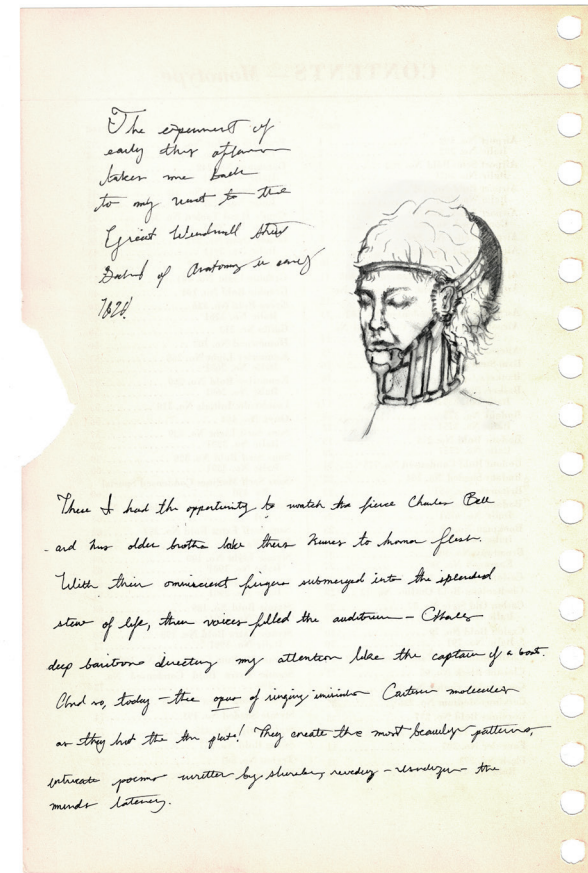 CONTENTS — Monotype
The experiment of
early this afternoon
takes me back
to my visit to the
Great Windmill Street
School of Anatomy in early
There I had the opportunity to watch the fierce Charles Bell
and his older brother take their knives to human flesh.
With their omniscient fingers submerged into the splendid
stew of life, their voices filled the auditorium — Charles
deep baritone directing my attention like the captain of a boat.
And so, today — the opus of singing Cartesian molecules
as they hit the thin plate! They create the most beautiful patterns,
intricate poems written by — the
minds latency.